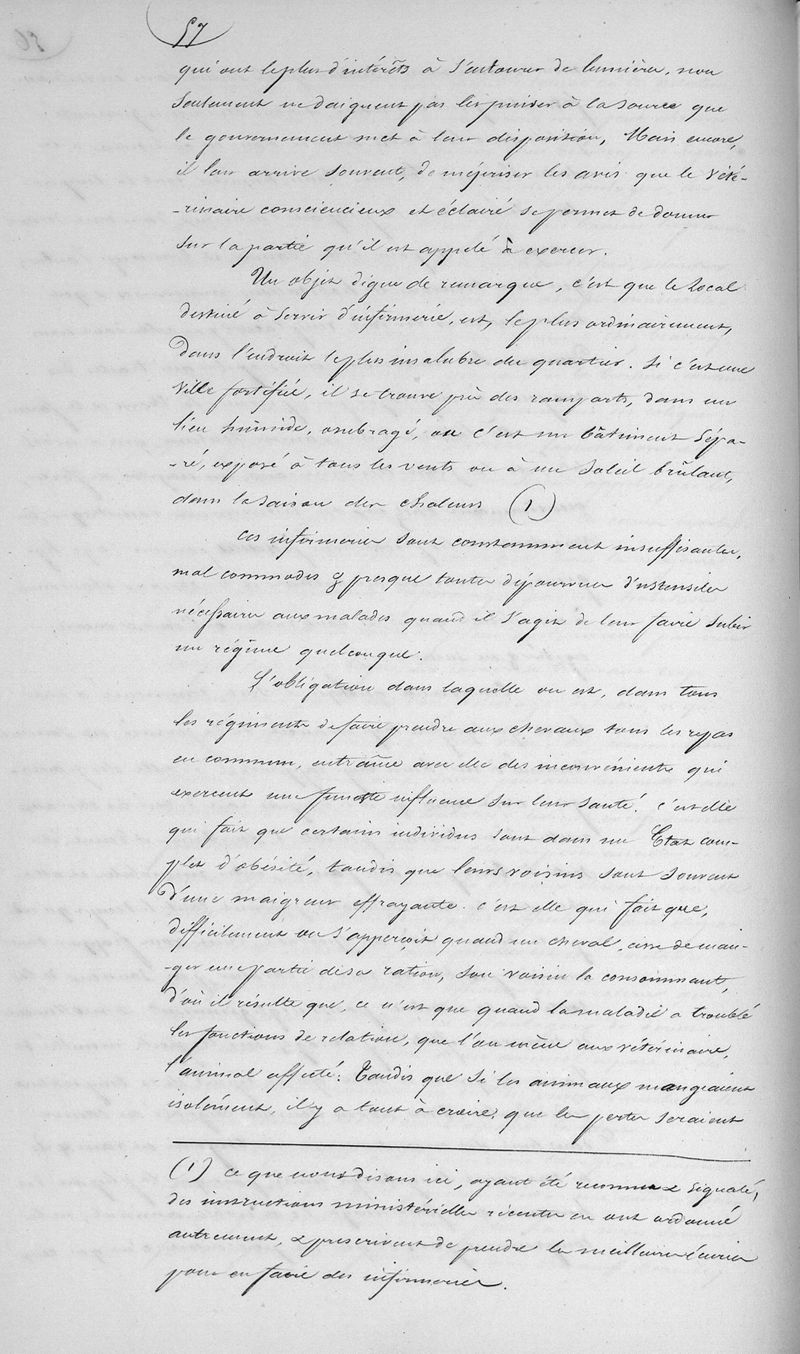 57
qui ont le plus d'intérêts à s'entourer de lumière, non
seulement ne daignent pas les puiser à la source que
le gouvernement met à leur disposition, Mais encore,
il leur arrive souvent, de mépriser les avis que le Vété-
-rinaire consciencieux et éclairé se permet de donner
sur la partie qu'il est appelé à exercer.
Un objet digne de remarque, c'est que le Local
destiné à servir d'infirmerie, est, le plus ordinairement,
Dans l'endroit le plus insalubre du quartier. Si c'est une
Ville fortifiée, il se trouve près des remparts, dans un
lieu humide, ombragé, ou c'est un bâtiment sépa-
-ré, exposé à tous les vents ou à un soleil brûlant,
dans la saison des chaleurs (1)
Ces infirmeries sont constamment insuffisantes,
mal commodes & presque toutes dépourvues d'ustensiles
nécessaires aux malades quand il s'agit de leur faire subir
un régime quelconque.
L'obligation dans laquelle on est, dans tous
les régiments de faire prendre aux chevaux tous les repas
en commun, entraîne avec elle des inconvénients qui
exercent une funeste influence sur leur santé. c'est elle
qui fait que certains individus sont dans un Etat com-
plet d'obésité, tandis que leurs voisins sont souvent
d'une maigreur effrayante. c'est elle qui fait que,
difficilement on s'apperçoit quand un cheval, cesse de man-
-ger une partie de sa ration, son voisin la consommant,
d'où il résulte que, ce n'est que quand la maladie a troublé
les fonctions de relation, que l'on mène aux vétérinaire,
l'animal affecté: Tandis que si les animaux mangeaient
isolément, il y a tout à croire, que les pertes seraient
(1) Ce que nous disons ici, ayant été reconnu & signalé,
des instructions ministérielles récentes en ont ordonné
autrement, & prescrivent de prendre les meilleures écuries
pour en faire des infirmeries.